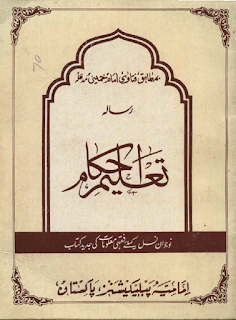 مطابق فتاویٰ امام خمینی مدظلہ
رسالہ
تعلیم احکام
نوجوان نسل کیلئے فقہی معلومات کی جدید کتاب
امامیہ پبلیکیشنز پاکستان